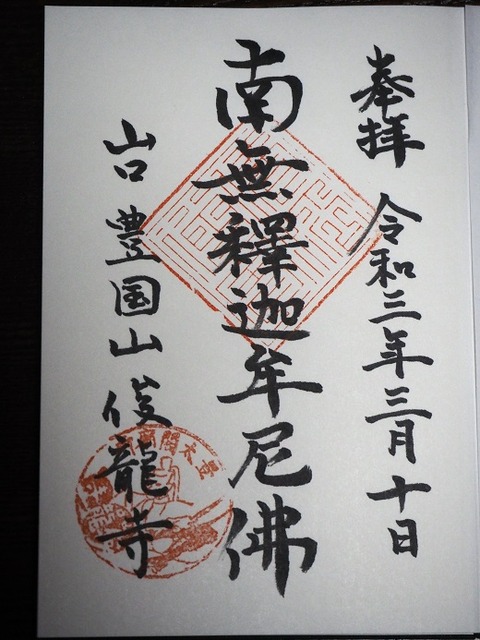 奉拝 令和三年三月十日
南無釋迦牟尼佛
山口 豊国山 俊龍寺